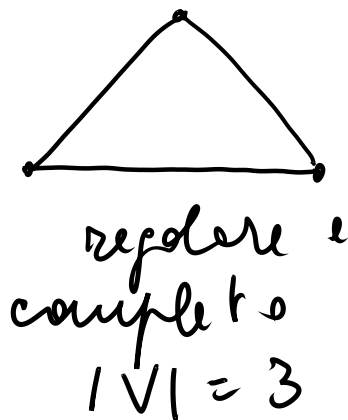 regolare e
completo
|V| = 3